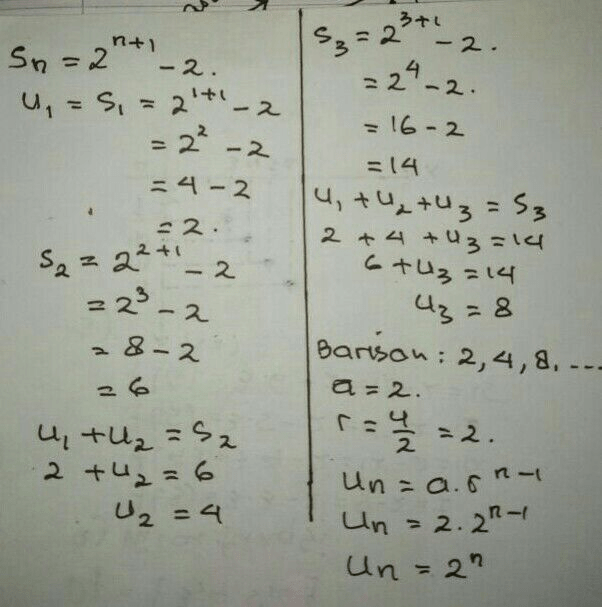 Sn = 2^(n+1) - 2.
U₁ = S₁ = 2^(1+1) - 2
= 2² - 2
= 4 - 2
= 2.
S₂ = 2^(2+1) - 2
= 2³ - 2
= 8 - 2
= 6
U₁ + U₂ = S₂
2 + U₂ = 6
U₂ = 4
S₃ = 2^(3+1) - 2.
= 2⁴ - 2.
= 16 - 2
= 14
U₁ + U₂ + U₃ = S₃
2 + 4 + U₃ = 14
6 + U₃ = 14
U₃ = 8
Barisan : 2, 4, 8, ...
a = 2.
r = 4/2 = 2.
Un = a.r^(n-1)
Un = 2.2^(n-1)
Un = 2ⁿ